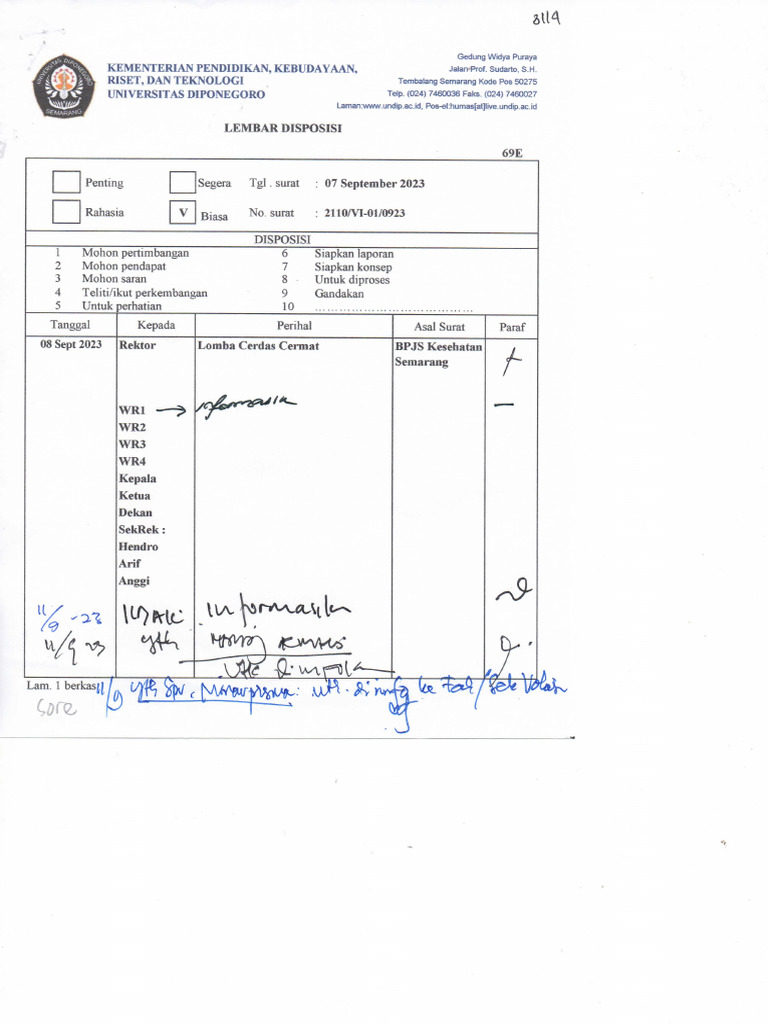 3114
UNIVERSITAS DIPONEGORO
SEMARANG
KEMENTERIAN PENDIDIKAN, KEBUDAYAAN,
RISET, DAN TEKNOLOGI
UNIVERSITAS DIPONEGORO
Gedung Widya Puraya
Jalan Prof. Sudarto, S.H.
Tembalang Semarang Kode Pos 50275
Telp. (024) 7460036 Faks. (024) 7460027
Laman:www.undip.ac.id, Pos-el:humas[at]live.undip.ac.id
LEMBAR DISPOSISI
69E
Penting Segera Tgl . surat : 07 September 2023
Rahasia V Biasa No. surat : 2110/VI-01/0923
DISPOSISI
1 Mohon pertimbangan 6 Siapkan laporan
2 Mohon pendapat 7 Siapkan konsep
3 Mohon saran 8 Untuk diproses
4 Teliti/ikut perkembangan 9 Gandakan
5 Untuk perhatian 10 ......................................
Tanggal Kepada Perihal Asal Surat Paraf
08 Sept 2023 Rektor Lomba Cerdas Cermat BPJS Kesehatan
Semarang
WR1 → informasik
WR2
WR3
WR4
Kepala
Ketua
Dekan
SekRek :
Hendro
Arif
Anggi
11/9 -23 informasik
11/9 23 yth
Lam. 1 berkas
11/9 yth Spv. ke
sore